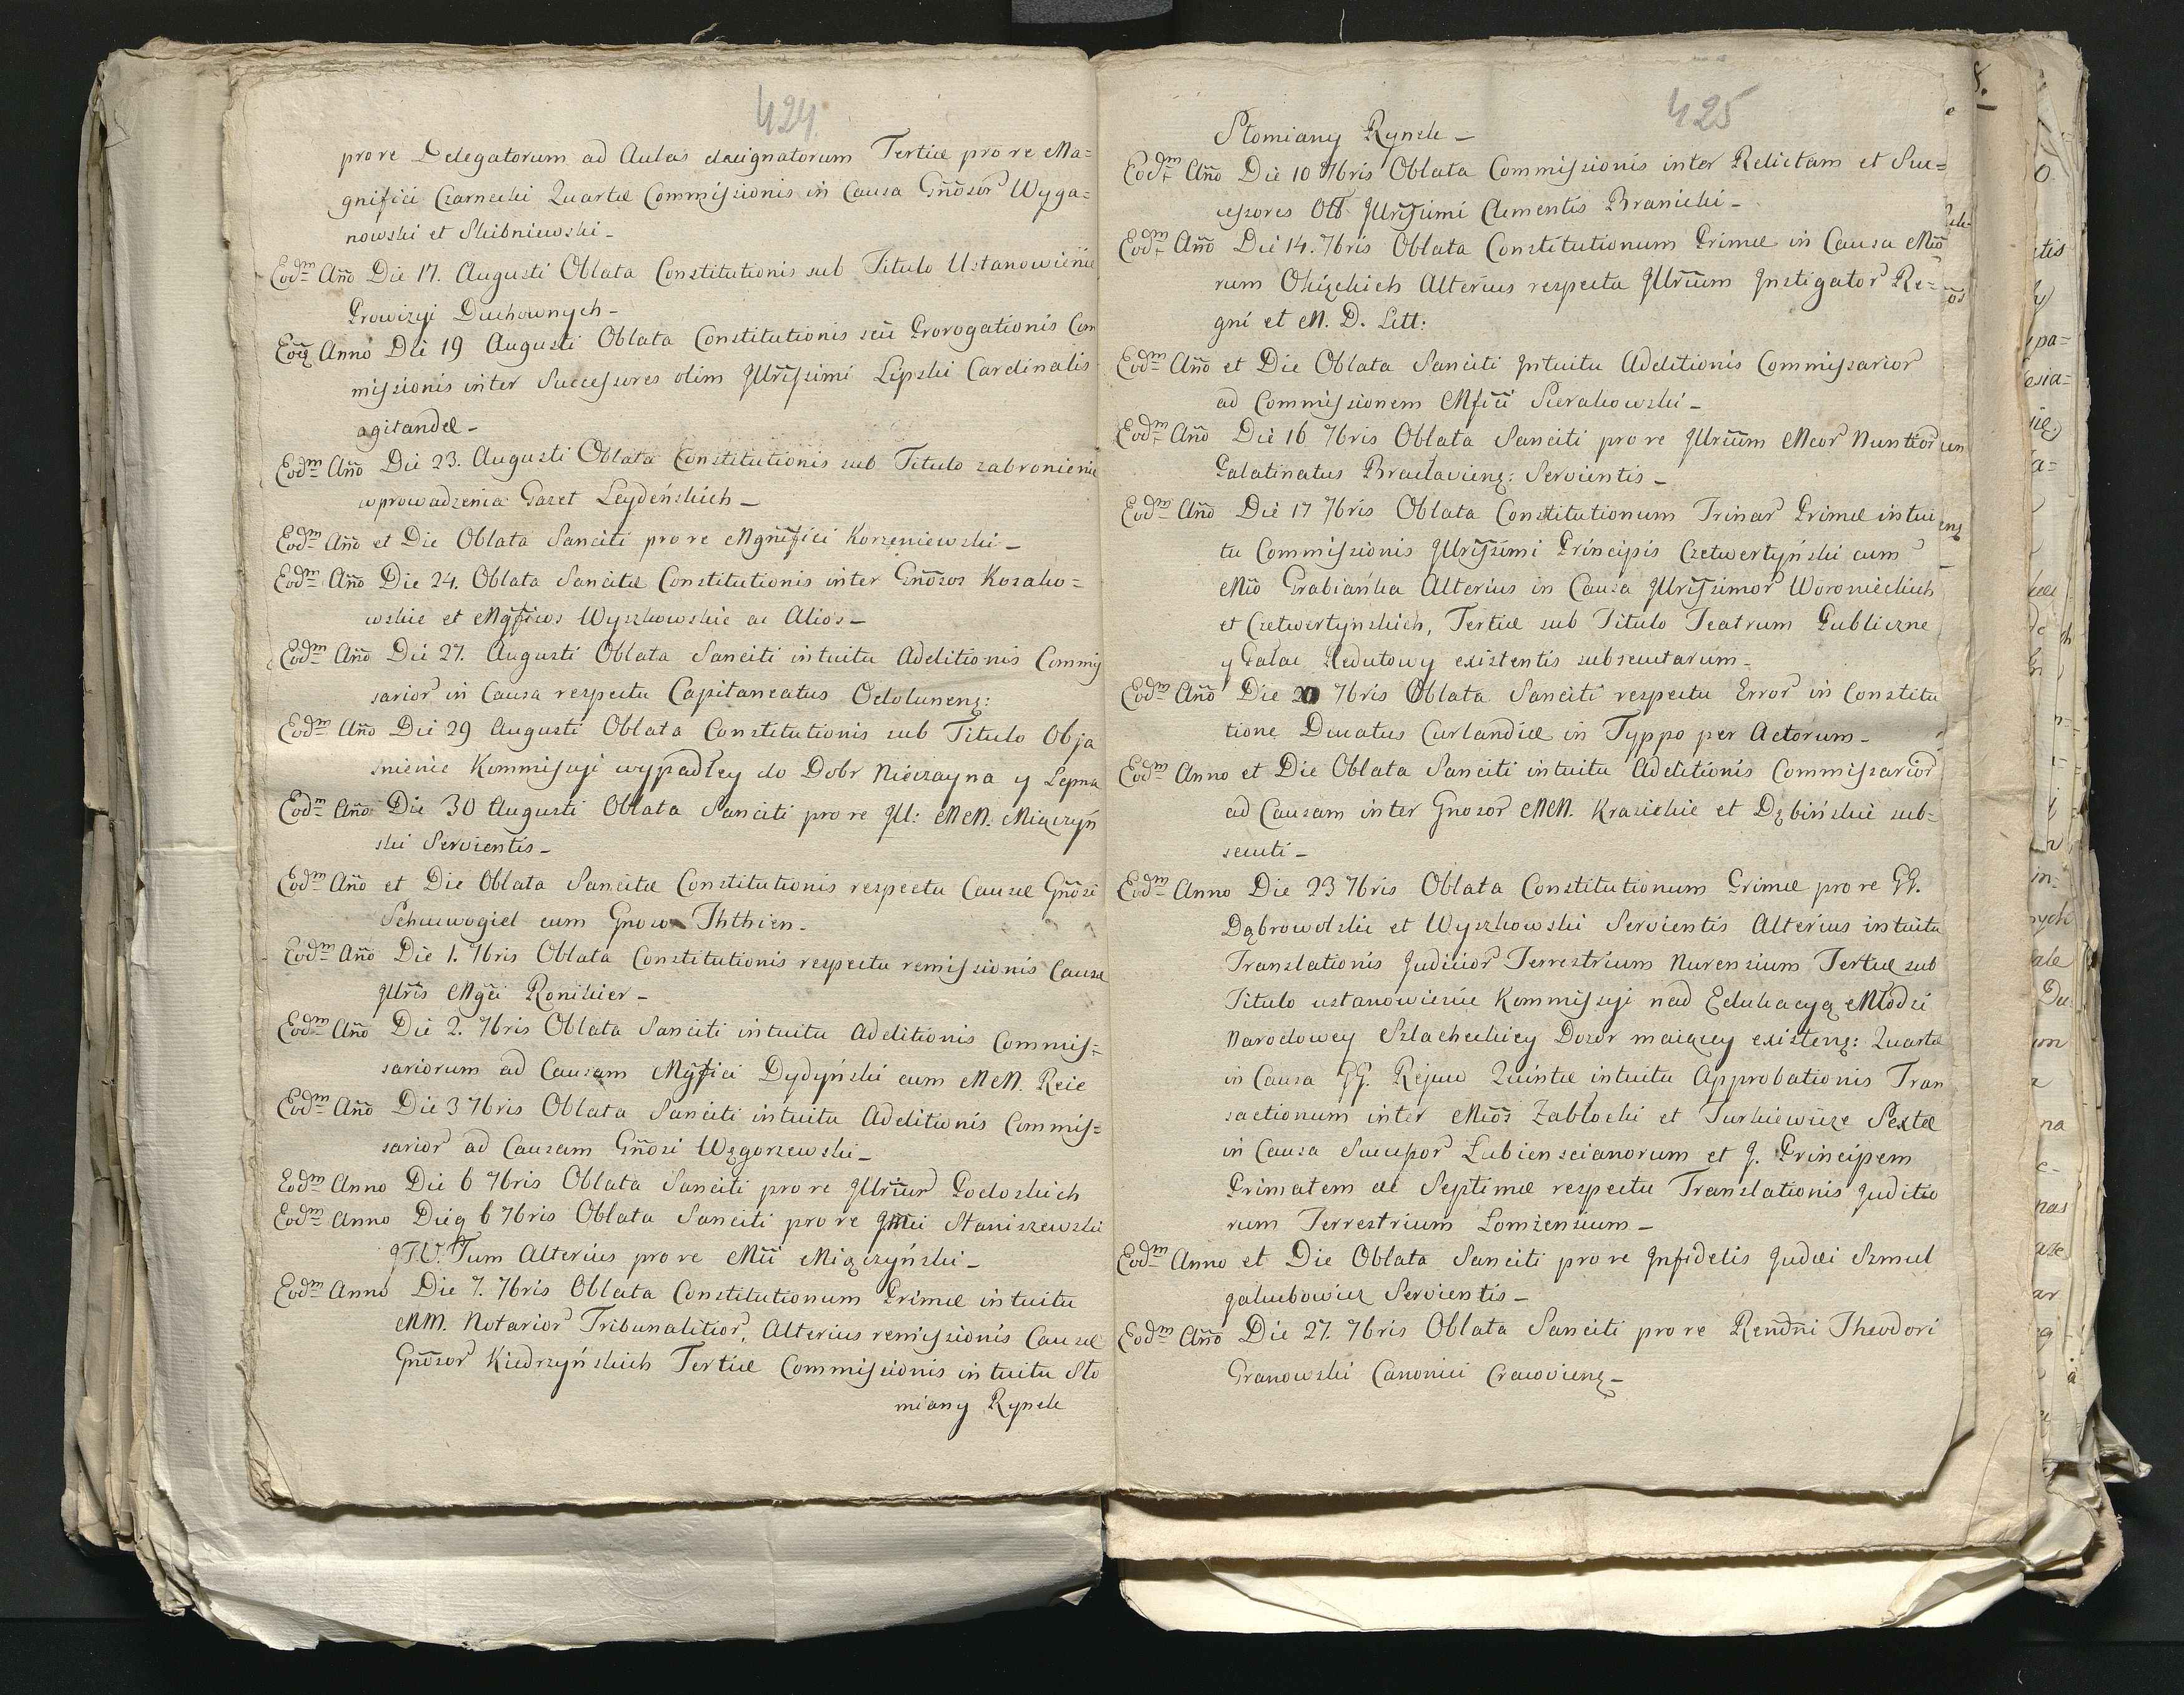 424
pro re Delegatorum ad Aulas designatorum Tertiæ pro re Ma=
gnifici Czarnecki Quartæ Commissionis in Causa Gñosor Wyga=
nowski et Skibniewski -
Eodm Año Die 17. Augusti Oblata Constitutionis sub Titulo Ustanowienie
Prowizyi Duchownych -
Eoq Anno Die 19 Augusti Oblata Constitutionis seu Prorogationis Com
missionis inter Successores olim Jllrissimi Lipski Cardinalis
agitandæ -
Eodm Año Die 23. Augusti Oblata Constitutionis sub Titulo zabronienie
wprowadzenia Gazet Leydeńskich -
Eodm Año et Die Oblata Sanciti pro re Mgnifici Korzeniewski -
Eodm Año Die 24. Oblata Sancitæ Constitutionis inter Gñosos Kozako=
wskie et Mgficos Wyszkowskie ac Alios -
Eodm Año Die 27. Augusti Oblata Sanciti intuitu Additionis Commis
sarior in Causa respectu Capitaneatus Odoluneng:
Eodm Año Die 29 Augusti Oblata Constitutionis sub Titulo Obja
snienie Kommissyi wypadłey do Dobr Nieczayna y Lepna
Eodm Año Die 30 Augusti Oblata Sanciti pro re Jll: MM. Miączyń
ski Servientis -
Eodm Año et Die Oblata Sancitæ Constitutionis respectu Causæ Gñosi
Schuwogiel cum Gnow Ththien -
Eodm Año Die 1. 7bris Oblata Constitutionis respectu remissionis Causæ
Jllris Mgci Ronikier -
Eodm Año Die 2. 7bris Oblata Sanciti intuitu Additionis Commis=
sariorum ad Causam Mgfici Dydyński cum MM. Reie
Eodm Año Die 3 7bris Oblata Sanciti intuitu Additionis Commis=
sarior ad Causam Gñosi Węgorzewski -
Eodm Anno Die 6 7bris Oblata Sanciti pro re Jllriur Podoskich
Eodm Anno Dieq 6 7bris Oblata Sanciti pro re Staniszewski
J.V. Tum Alterius pro re Mii Miączyński -
Eodm Anno Die 7. 7bris Oblata Constitutionum Primæ intuitu
MM. Notarior Tribunalitior, Alterius remissionis Causæ
Gñosor Kiedrzyńskich Tertiæ Commissionis intuitu Sło
miany Rynek
425
Słomiany Rynek -
Eodm Año Die 10 7bris Oblata Commissionis inter Relictam et Suc=
cessores Olt Jllrissimi Clementis Branicki -
Eodm Año Die 14. 7bris Oblata Constitutionum Primæ in Causa Mio
rum Ożigekich Alterius respectu Jllrium Jnstigator Re=
gni et M. D. Litt:
Eodm Año et Die Oblata Sanciti Jntuitu Additionis Commissarior
ad Commissionem Mfici Sierakowski -
Eodm Año Die 16 7bris Oblata Sanciti pro re Jllrium Mcor Nuntior
Palatinatus Bracłavieng: Servientis -
Eodm Año Die 17 7bris Oblata Constitutionum Trinar Primæ intui
tu Commissionis Jllrissimi Principis Czetwertyński cum
Mio Grabianka Alterius in Causa Jllrissimor Woronieckich
et Czetwertynskich, Tertiæ sub Titulo Teatrum Publiczne
y Pałac Redutowy existentis subsecutarum -
Eodm Año Die 7bris Oblata Sanciti respectu Error in Constitu
tione Ducatus Curlandiæ in Typpo per Actorum -
Eodm Anno et Die Oblata Sanciti intuitu Additionis Commissarior
ad Causam inter Gnosor MM. Krasickie et Dębińskie sub=
secuti -
Eodm Anno Die 23 7bris Oblata Constitutionum Primæ pro re GG.
Dąbrowolski et Wyszkowski Servientis Alterius intuitu
Translationis Judicior Terrestrium Nurensium Tertiæ sub
Titulo ustanowienie Kommissyi nad Edukacyą Młodzi
Narodowey Szlacheckiey Dozór maiącey existeng: Quartæ
in Causa GG. Rejuw Quintæ intuitu Approbationis Tran
sactionum inter Mios Zabłocki et Turkiewicze Sextæ
in Causa Succesor Lubiensianorum et J. Principem
Primatem ac Septimæ respectu Translationis Juditio
rum Terrestrium Lomzensium -
Eodm Anno et Die Oblata Sanciti pro re Jnfidelis Judæi Szmul
Jakubowicz Servientis -
Eodm Año Die 27. 7bris Oblata Sanciti pro re Rendñi Theodori
Granowski Canonici Cracovieng -